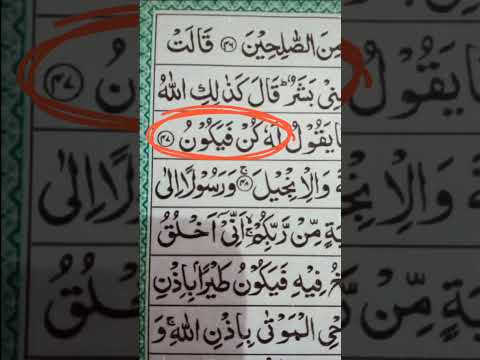 مِنَ الصّٰلِحِیْنَ ﴿۴۶﴾ قَالَتْ
نِیْ بَشَرٌ ؕ قَالَ كَذٰلِكِ اللّٰهُ
یَقُوْلُ لَهٗ كُنْ فَیَكُوْنُ ﴿۴۷﴾
وَالْاِنْجِیْلَ ﴿۴۸﴾ وَرَسُوْلًا اِلٰی
مِّنْ رَّبِّكُمْ ۙ اَنِّیْۤ اَخْلُقُ
فِیْهِ فَیَكُوْنُ طَیْرًۢا بِاِذْنِ
الْمَوْتٰی بِاِذْنِ اللّٰهِ ۚ وَ